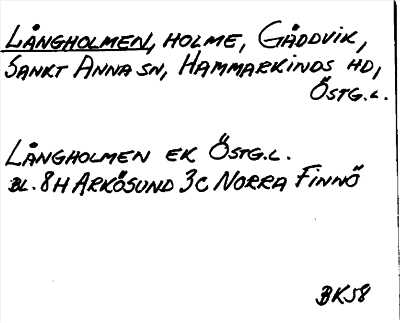 LÅNGHOLMEN, HOLME, GÄDDVIK,
SANKT ANNA SN, HAMMARKINDS HD,
ÖSTG.L.
LÅNGHOLMEN EK ÖSTG.L.
BL. 8H ARKÖSUND 3C NORRA FINNÖ
BK58